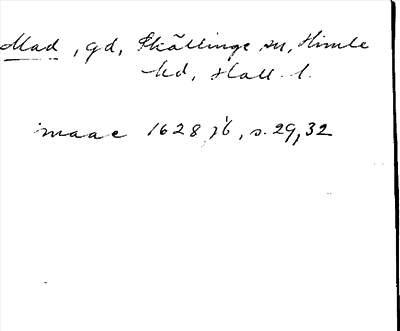 Mad, gd, Skällinge sn, Himle
hd, Hall. l.
maae 1628 jb, s. 29, 32